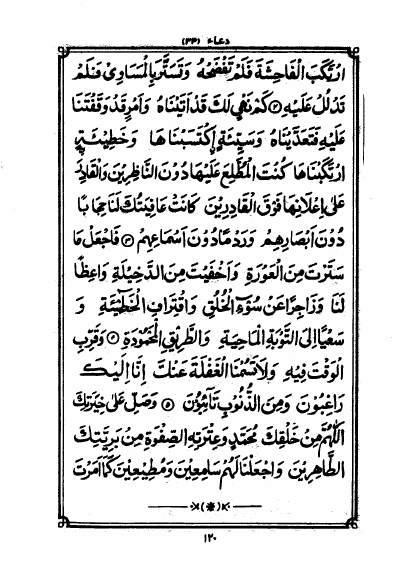 دعاء (۳۴)
ارْتَكَبَ الْفَاحِشَةَ فَلَمْ تَفْضَحْهُ وَتَسَتَّرَ بِالْمَسَاوِئِ فَلَمْ
تَدْلُلْ عَلَيْهِ ② كَمْ نَهْيٍ لَكَ قَدْ أَتَيْنَاهُ وَأَمْرٍ قَدْ وَقَفْتَنَا
عَلَيْهِ فَتَعَدَّيْنَاهُ وَسَيِّئَةٍ اكْتَسَبْنَاهَا وَخَطِيئَةٍ
ارْتَكَبْنَاهَا كُنْتَ الْمُطَّلِعَ عَلَيْهَا دُونَ النَّاظِرِينَ وَالْقَادِرَ
عَلَى إِعْلَانِهَا فَوْقَ الْقَادِرِينَ كَانَتْ عَافِيَتُكَ لَنَا حِجَابًا
دُونَ أَبْصَارِهِمْ وَرَدْمًا دُونَ أَسْمَاعِهِمْ ③ فَاجْعَلْ مَا
سَتَرْتَ مِنَ الْعَوْرَةِ وَأَخْفَيْتَ مِنَ الدَّخِيلَةِ وَاعِظًا
لَنَا وَزَاجِرًا عَنْ سُوءِ الْخُلُقِ وَاقْتِرَافِ الْخَطِيئَةِ وَ
سَعْيًا إِلَى التَّوْبَةِ الْمَاحِيَةِ وَالطَّرِيقِ الْمَحْمُودَةِ ④ وَقَرِّبِ
الْوَقْتَ فِيهِ وَلَا تَسُمْنَا الْغَفْلَةَ عَنْكَ إِنَّا إِلَيْكَ
رَاغِبُونَ وَمِنَ الذُّنُوبِ تَائِبُونَ ⑤ وَصَلِّ عَلَى خِيَرَتِكَ
اللَّهُمَّ مِنْ خَلْقِكَ مُحَمَّدٍ وَعِتْرَتِهِ الصِّفْوَةِ مِنْ بَرِيَّتِكَ
الطَّاهِرِينَ وَاجْعَلْنَا لَهُمْ سَامِعِينَ وَمُطِيعِينَ كَمَا أَمَرْتَ
۱۲۰